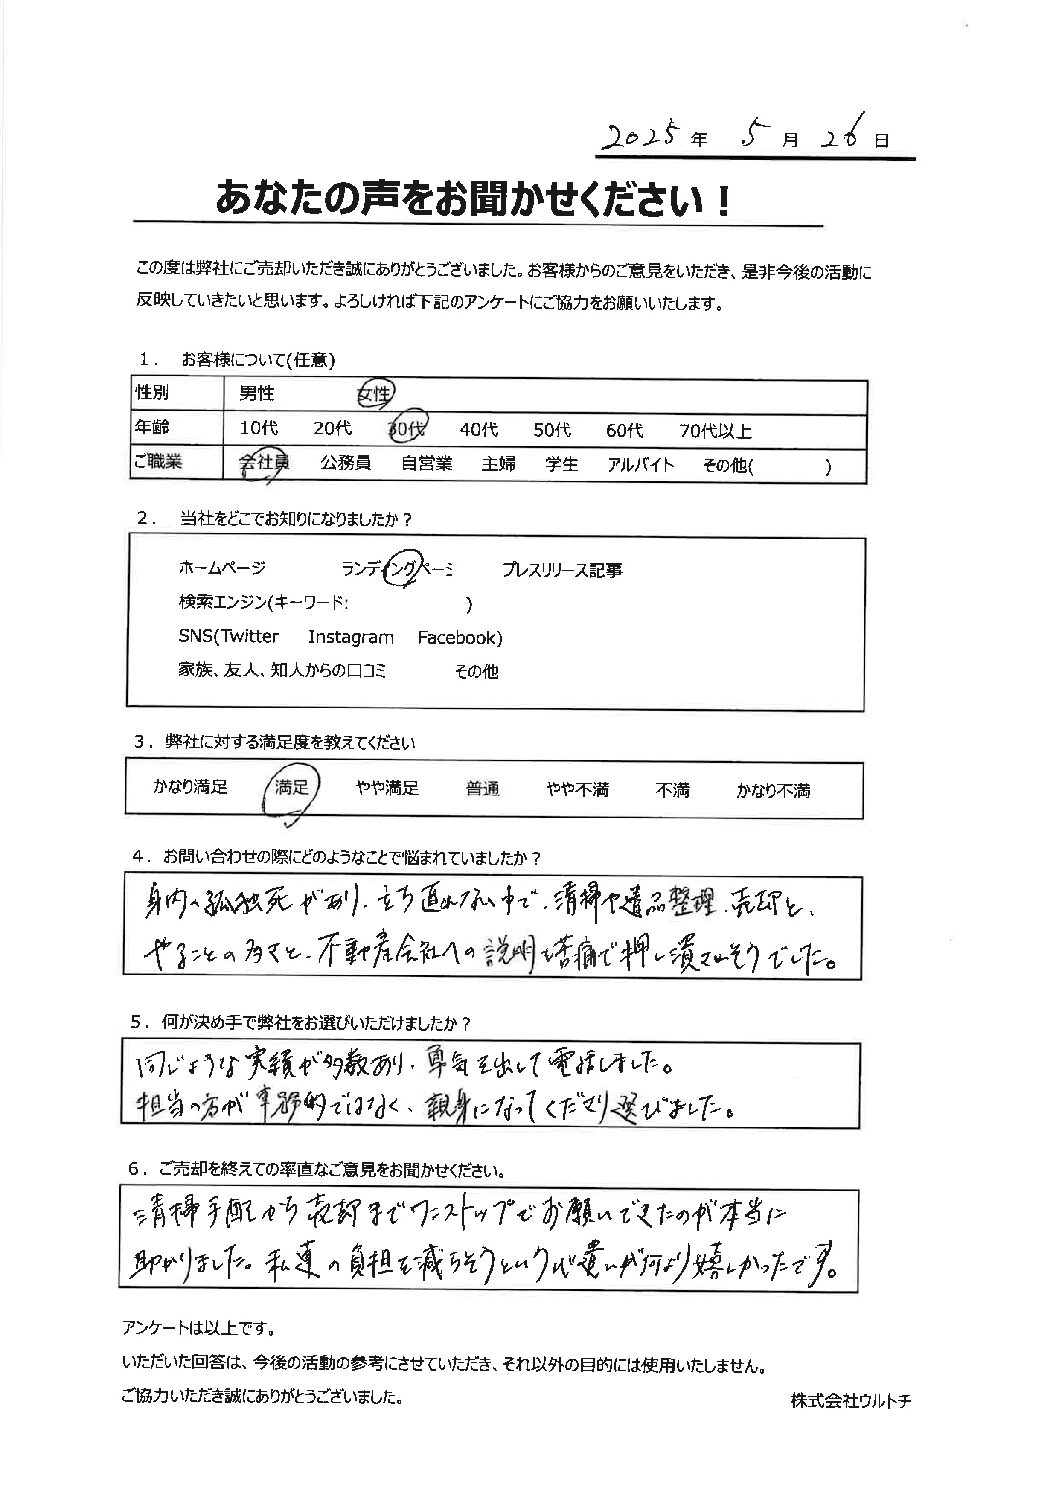 2025年 5月 26日
あなたの声をお聞かせください！
この度は弊社にご売却いただき誠にありがとうございました。お客様からのご意見をいただき、是非今後の活動に
反映していきたいと思います。よろしければ下記のアンケートにご協力をお願いいたします。
1. お客様について(任意)
性別 男性 女性
年齢 10代 20代 30代 40代 50代 60代 70代以上
ご職業 会社員 公務員 自営業 主婦 学生 アルバイト その他( )
2. 当社をどこでお知りになりましたか？
ホームページ ランディングページ プレスリリース記事
検索エンジン(キーワード: )
SNS(Twitter Instagram Facebook)
家族、友人、知人からの口コミ その他
3. 弊社に対する満足度を教えてください
かなり満足 満足 やや満足 普通 やや不満 不満 かなり不満
4. お問い合わせの際にどのようなことで悩まれていましたか？
身内の孤独死があり、立ち直れない中で、清掃や遺品整理、売却と、
やることの多さと、不動産会社への説明も苦痛で押し潰されそうでした。
5. 何が決め手で弊社をお選びいただけましたか？
同じような実績が多数あり、勇気を出して電話しました。
担当の方が事務的ではなく、親身になってくださり選びました。
6. ご売却を終えての率直なご意見をお聞かせください。
清掃手配から売却までワンストップでお願いできたのが本当に
助かりました。私達の負担を減らそうという心遣いが何より嬉しかったです。
アンケートは以上です。
いただいた回答は、今後の活動の参考にさせていただき、それ以外の目的には使用いたしません。
ご協力いただき誠にありがとうございました。
株式会社ウルトチ